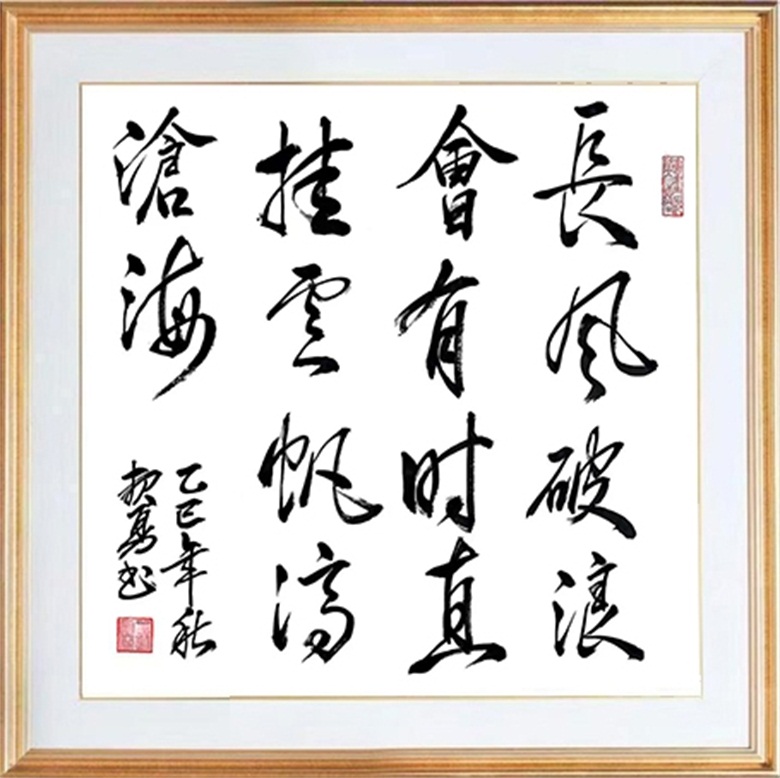 長风破浪
會有时直
挂雲帆濟
滄海
乙巳年秋